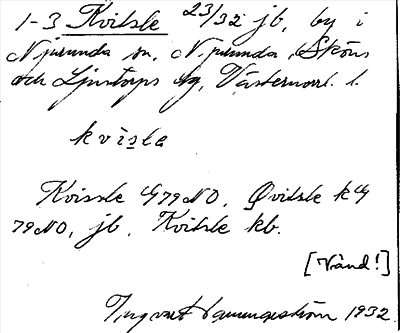 1-3 Kvitsle 23/32 jb, by i
Njurunda sn, Njurunda, Sköns
och Ljustorps tg, Västernorrl. l.
kvisle
Kvissle G79NO. Qvitsle kG
79NO, jb. Kvitsle kb.
[Vänd!]
Ingvar Hammarström 1932